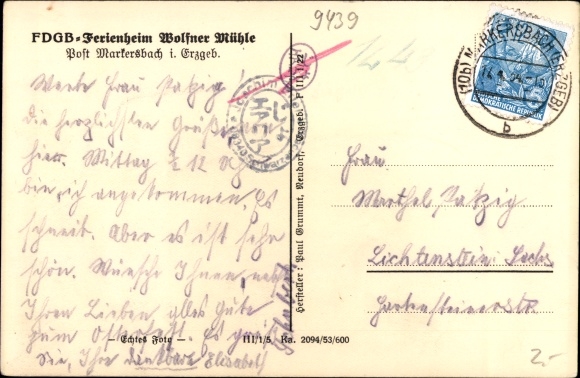 9439
FDGB-Ferienheim Wolfner Mühle
Post Markersbach i. Erzgeb.
Werte Frau Patzig!
die herzlichsten Grüße
hier. Mittag ½ 12 Uhr
bin ich angekommen. Es
schneit. Aber es ist sehr
schön. Wünsche Ihnen, nebst
Ihren Lieben alles Gute
zum Osterfest. Es grüßt
Sie, Ihre dankbare Elisabeth
Echtes Foto
III/1/5 Ra. 2094/53/600
Hersteller: Paul Grummt, Neudorf, Erzgeb. P III 1 22
(10b) MARKERSBACH (ERZGEB)
b
DEMOKRATISCHE REPUBLIK
Frau
Marthel Patzig
Lichtenstein Sachs
Hartensteinerstr
2.-